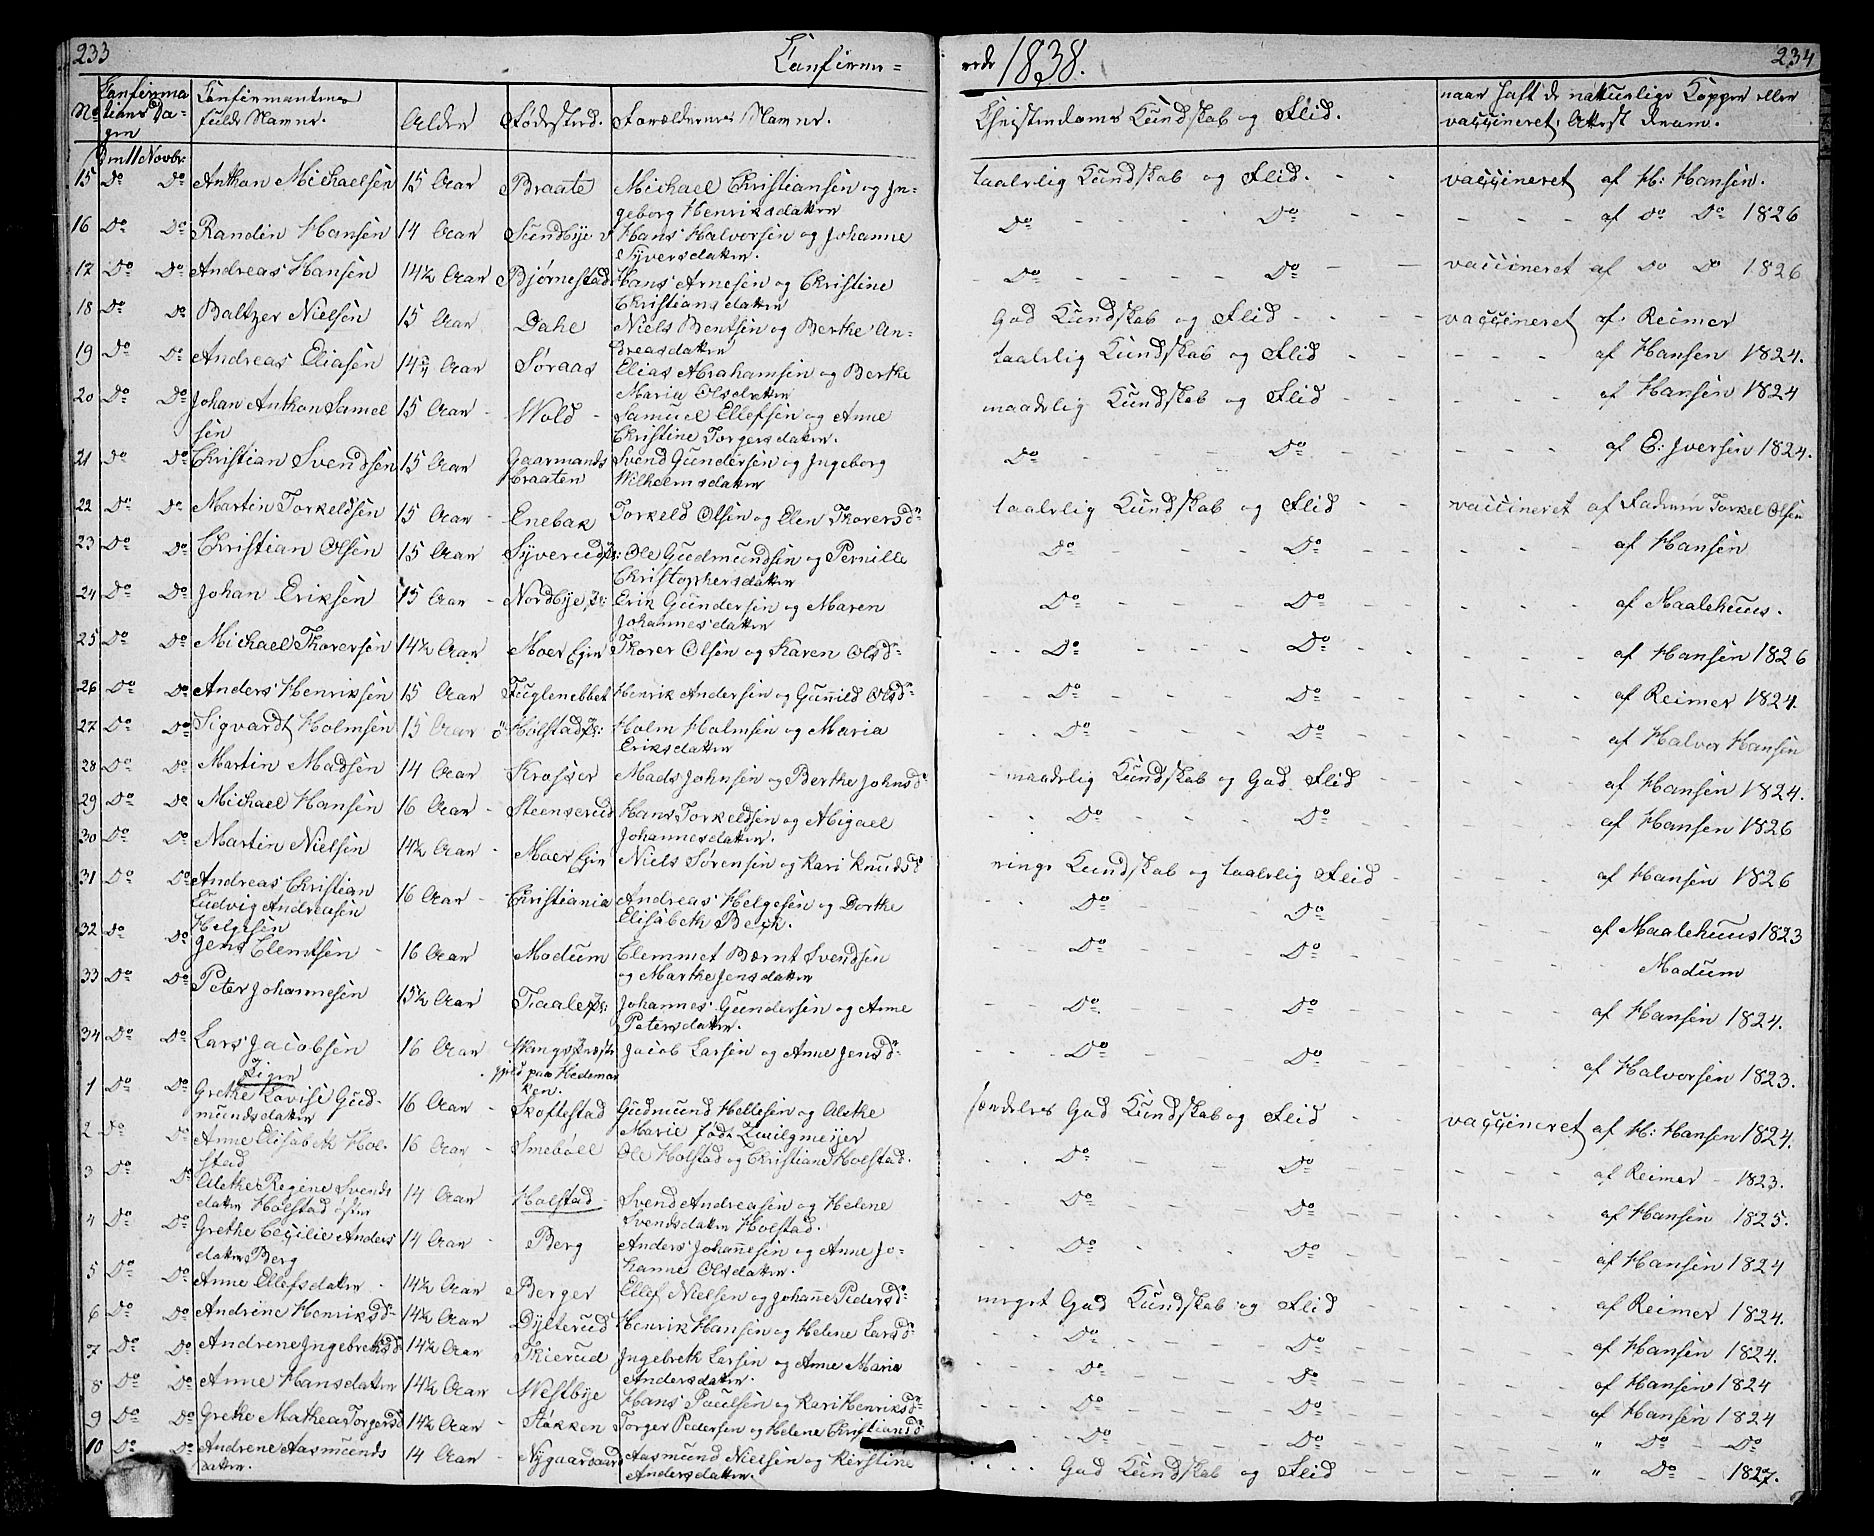 233 Confirme=
rede 1838. 234
No Confirmations Dagen Confirmanternes fulde Navne. Alder Fødested. Forældrenes Navne. Christendoms Kundskab og Flid. naar haft de naturlige Kopper eller vaccineret, Attest derom.
Den 11 Novbr
15 Do Do Anthon Michaelsen 15 Aar Braate Michael Christiansen og Ingeborg Henriksdatter taalelig Kundskab og Flid. - - vaccineret af H: Hansen.
16 Do Do Randin Hansen 14 Aar Sundbye v Hans Halvorsen og Johanne Syversdatter. Do - - Do - - af do Do 1826
17 Do Do Andreas Hansen 14½ Aar Bjørnestad Hans Arnesen og Christine Christiansdatter Do - - Do - - vaccineret af do Do 1826
18 Do Do Baltzer Nielsen 15 Aar Dahe Niels Bentsen og Berthe Andreasdatter God Kundskab og Flid - - vaccineret af Reimer
19 Do Do Andreas Eliasen 14¾ Aar Søraas Elias Abrahamsen og Berthe Maria Olsdatter taalelig Kundskab og Flid - - af Hansen 1824.
20 Do Do Johan Anthon Samelsen 15 Aar - Wold - Samuel Ellefsen og Anne Christine Torgersdatter. maadelig Kundskab og Flid - - af Hansen 1824
21 Do Do Christian Svendsen 15 Aar Gaarmandsbraaten Svend Gundersen og Ingeborg Wilhelmsdatter Do - - Do - - af E: Iversen 1824.
22 Do Do Martin Torkeldsen 15 Aar - Enebak Torkeld Olsen og Elen Thoresd: taalelig Kundskab og Flid - - vaccineret af Fadren Torkel Olsen
23 Do Do Christian Olsen 15 Aar Syverud Ole Gudmundsen og Pernille Christophersdatter Do - - Do - - af Hansen
24 Do Do Johan Eriksen 15 Aar - Nordbye Erik Gundersen og Maren Johannesdatter Do - - Do - - af Maalehuus.
25 Do Do Michael Thoresen 14½ Aar Moer Ejer Thorer Olsen og Karen Olsd: Do - - Do - - af Hansen 1826
26 Do Do Anders Henriksen 15 Aar Fuglenebbet Henrik Andersen og Gunild Olsd: Do - - Do - - af Reimer 1824.
27 Do Do Sigvardt Holmsen 15 Aar ö Holstad Holm Holmsen og Maria Eriksdatter Do - - Do - - af Halvor Hansen
28 Do Do Martin Madsen 14 Aar Krosser Mads Johnsen og Berthe Johnsd: maadelig Kundskab og God Flid - - af Hansen 1824.
29 Do Do Michael Hansen 16 Aar - Steenserud Hans Torkeldsen og Abigael Johannesdatter. Do - - Do - - af Hansen 1826
30 Do Do Martin Nielsen 14½ Aar - Moer Ejer Niels Sørensen og Kari Knudsd: ringe Kundskab og taalelig Flid - - af Hansen 1826
31 Do Do Andreas Christian Ludvig Andreasen Helgesen 16 Aar - Christiania Andreas Helgesen og Dorthe Elisabeth Beck. Do - - Do - - af Maalehuus 1823
32 Do Do Jens Clemtsen - 16 Aar Modum Clemmet Bærnt Svendsen og Marthe Jensdatter Do - - Do - - Modum
33 Do Do Peter Johannesen 15½ Aar Taale Johannes Gundersen og Anne Petersdatter. Do - - Do - - af Hansen 1824.
34 Do Do Lars Jacobsen 16 Aar Wangs Præstegjeld paa Hedemarken. Jacob Larsen og Anne Jensd: Do - - Do - - af Halvorsen 1823.
Piger
1 Do Do Grethe Lovise Gudmundsdatter 16 Aar - Skoftestad Gudmund Hellesen og Alethe Marie født Zwilgmeyer særdeles God Kundskab og Flid - vaccineret af H: Hansen 1824.
2 Do Do Anne Elisabeth Holstad 16 Aar - Smebøll Ole Holstad og Christiane Holstad. Do - - Do - - af Reimer - 1823.
3 Do Do Alethe Regine Svendsdatter Holstad øster 14 Aar Holstad - Svend Andreasen og Helene Svendsdatter Holstad. Do - - Do - - af Hansen 1825.
4 Do Do Grethe Cecilie Andersdatter Berg 14 Aar - Berg Anders Johannesen og Anne Johanne Olsdatter. Do - - Do - - af Hansen 1824
5 Do Do Anne Ellefsdatter - 14½ Aar Berger Ellef Nielsen og Johanne Pedersd: meget God Kundskab og Flid - - af Reimer 1824.
6 Do Do Andrine Henriksd: 14½ Aar Dylterud Henrik Hansen og Helene Larsd: Do - - Do - - af Hansen 1824.
7 Do Do Andrene Ingebrethsd: 14½ Aar Skierud Ingebreth Larsen og Anne Maria Andersdatter. Do - - Do - - af Hansen 1824
8 Do Do Anne Hansdatter 14½ Aar - Westbye Hans Poulsen og Kari Henriksd: Do - - Do - - af Hansen 1824
9 Do Do Grethe Mathea Torgersd: 14½ Aar - Stokken Torger Pedersen og Helene Christiansd: Do - - Do - - " Do - Do
10 Do Do Andrene Aasmundsdatter. 14 Aar - Nygaard Aasmund Nielsen og Kirstine Andersdatter. God Kundskab og Flid - - " Do - 1827.